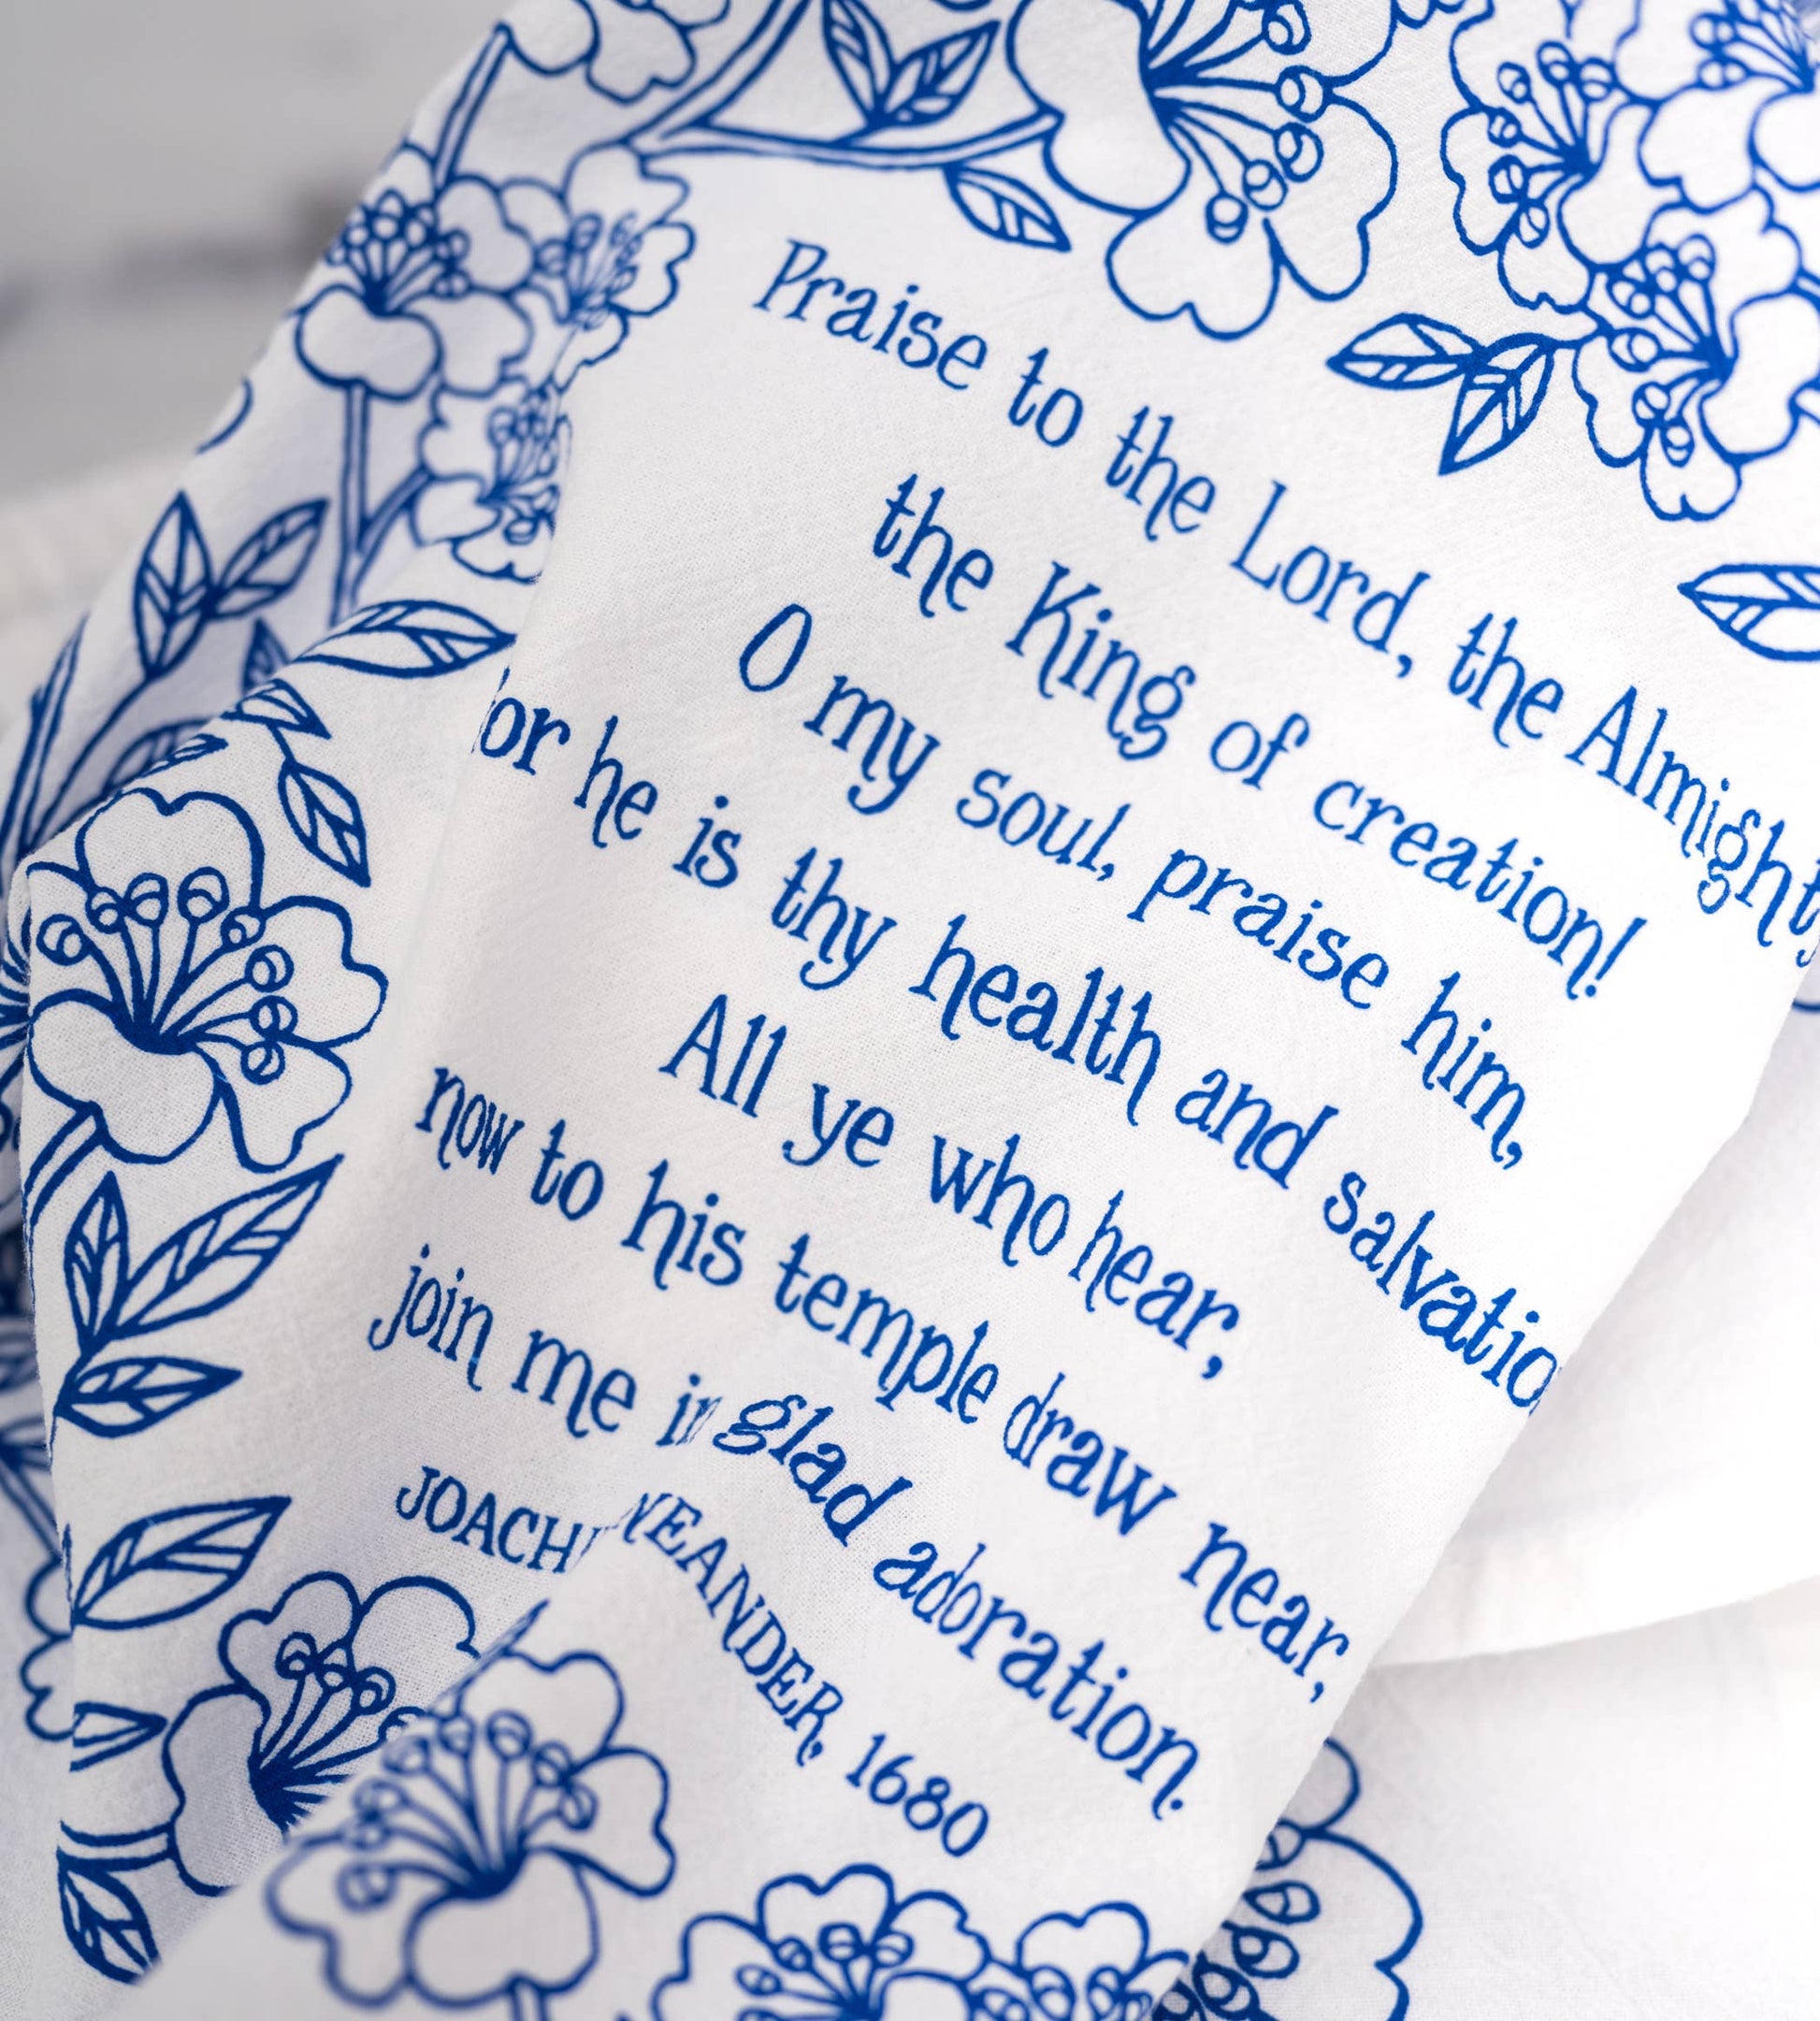 Praise to the Lord, the Almighty
the King of creation!
O my soul, praise him,
for he is thy health and salvatio
All ye who hear,
now to his temple draw near,
join me in glad adoration.
JOACHI NEANDER, 1680